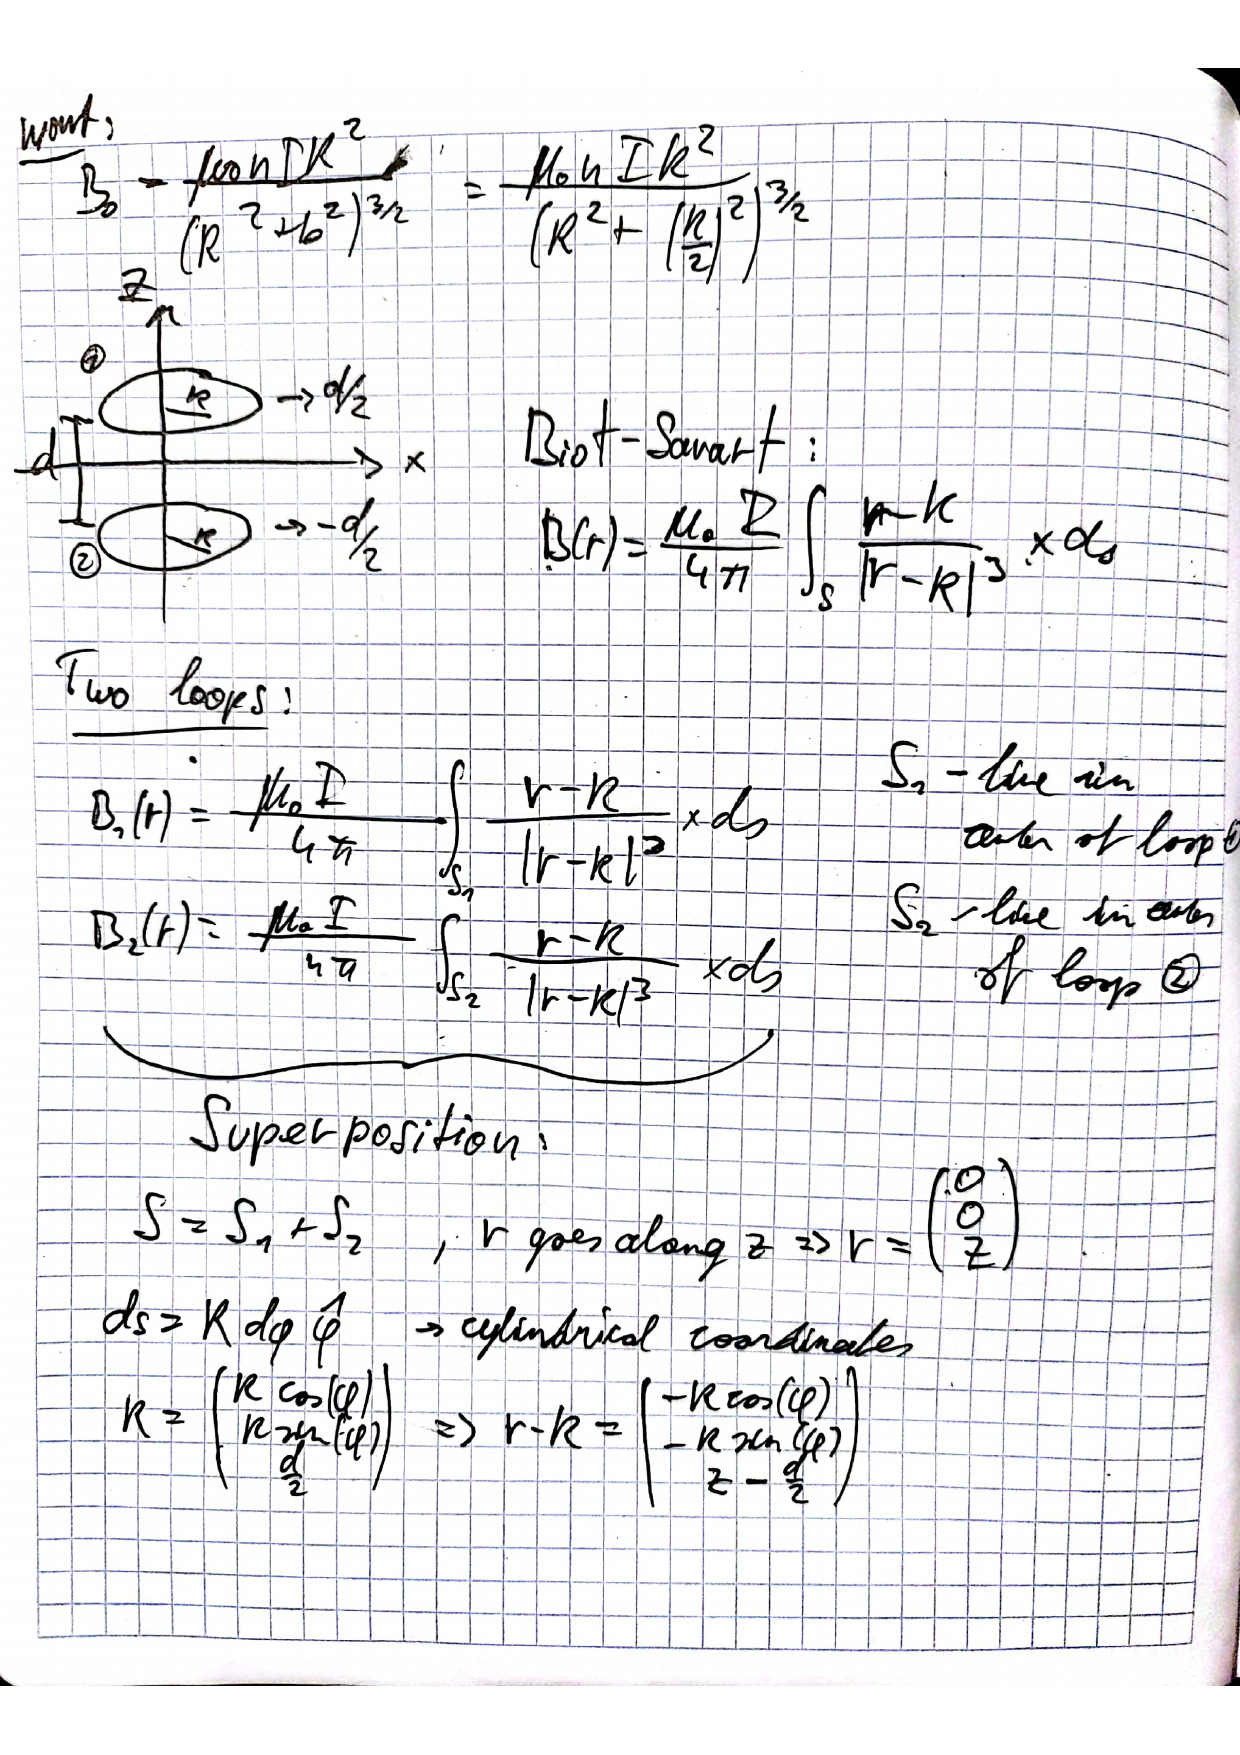 want:
B₀ = μ₀ n I R² / (R² + b²)^{3/2} = μ₀ n I R² / (R² + (R/2)²)^{3/2}
z
① R → d/2
d x
② R → -d/2
Biot-Savart:
B(r) = μ₀ I / 4π ∫_S (r-R) / |r-R|³ × ds
Two loops:
B₁(r) = μ₀ I / 4π ∫_{S₁} (r-R) / |r-R|³ × ds
S₁ - line in
center of loop ①
B₂(r) = μ₀ I / 4π ∫_{S₂} (r-R) / |r-R|³ × ds
S₂ - line in center
of loop ②
Superposition:
S = S₁ + S₂ , r goes along z => r = (0 0 z)
ds = R dφ φ̂ → cylindrical coordinates
R = (R cos(φ) R sin(φ) d/2) => r-R = (-R cos(φ) -R sin(φ) z - d/2)